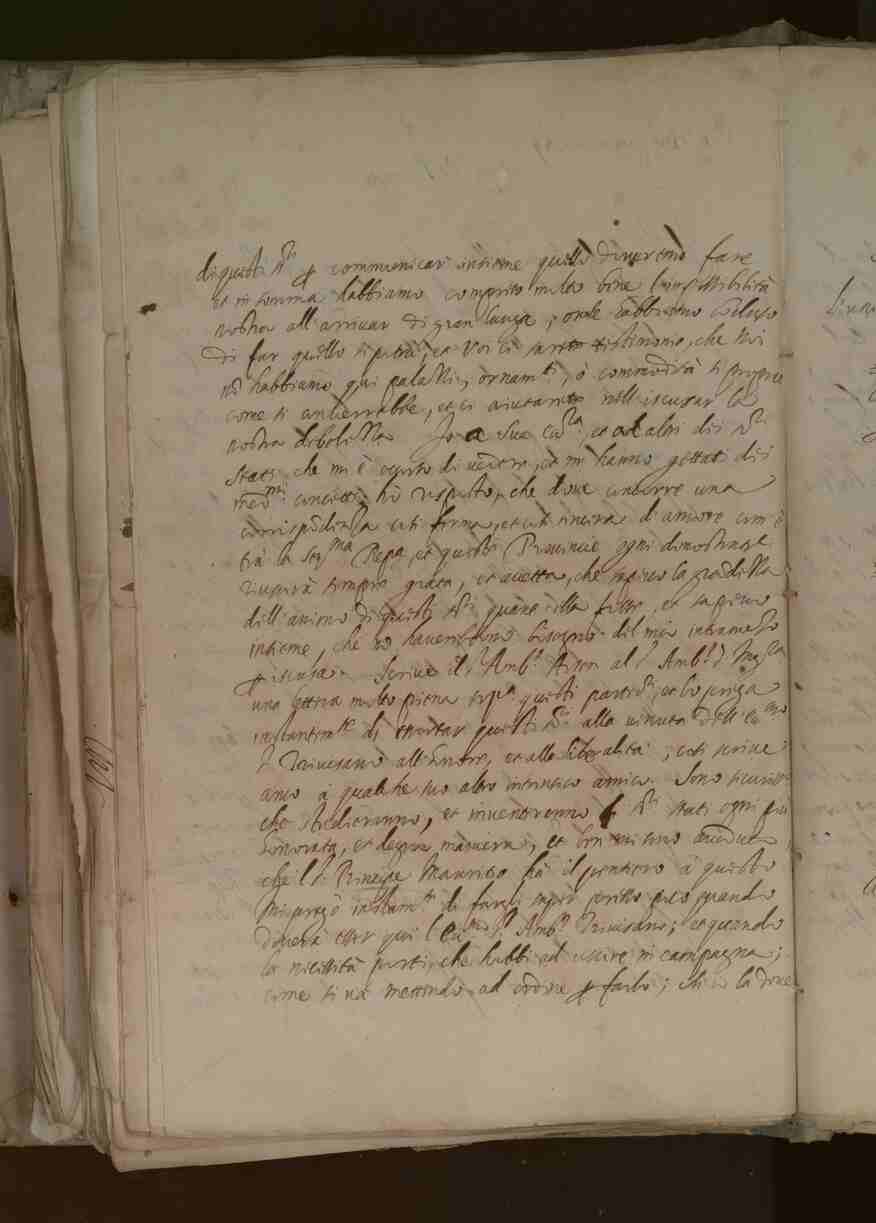 di questi SSri ꝑ communicar insieme quello doveremo fare
et in somma habbiamo compreso molto bene l'impossibilità
nostra all'arrivar di gran lunga; onde habbiamo concluso
di far quello si potrà, et Voi ci sarete testimonio, che Noi
nõ habbiamo qui palazzi, ornam.ti, ò commodità si proprie
come si converrebbe, et ci aiutarete nell'iscusar la
nostra debolezza. Io a sue ecc.za, et ad altri dei SSri
Stati, che mi è occorso di vedere, et mi hanno gettati dei
med.mi concetti, hò risposto, che dove concorre una
corrispõdenza così ferma, et così sincera di amore com'è
trà la Ser.ma Rep.ca, et queste Provincie ogni dimostratione
riuscirà sempre grata, et accetta, che sapevo la grãdezza
dell'animo di questi SSri quale ella fosse, et sapevo
insieme, che nõ haverebbono bisogno del mio intramezo
ꝑ iscusa. Scrive il Sr Amb.r Arsen al Sr Amb.r di
una lettera molto piena sop.a questi partic.ri, et lo prega
instantem.te di essortar questi SSri alla venuta dell'Ecc.mo
Sr Trivisano all'honore, et alla liberalità; così scrive
anco à qualche suo altro intrinseco amico. Sono sicuro
che studieranno, et inventeranno li SSri stati ogni più
honorata, et degna maniera, et ben mi sono aveduto,
che 'l Sr Principe Mauritio hà il pensiero à questo
Mi pregò instam.te di farli saper presto poco quando
doverà esser qui l'Ecc.mo Sr Amb.r Trivisano; et quando
la necessità porti, che habbi ad uscire in campagna;
come si và mettendo ad ordine ꝑ farlo; che là dove